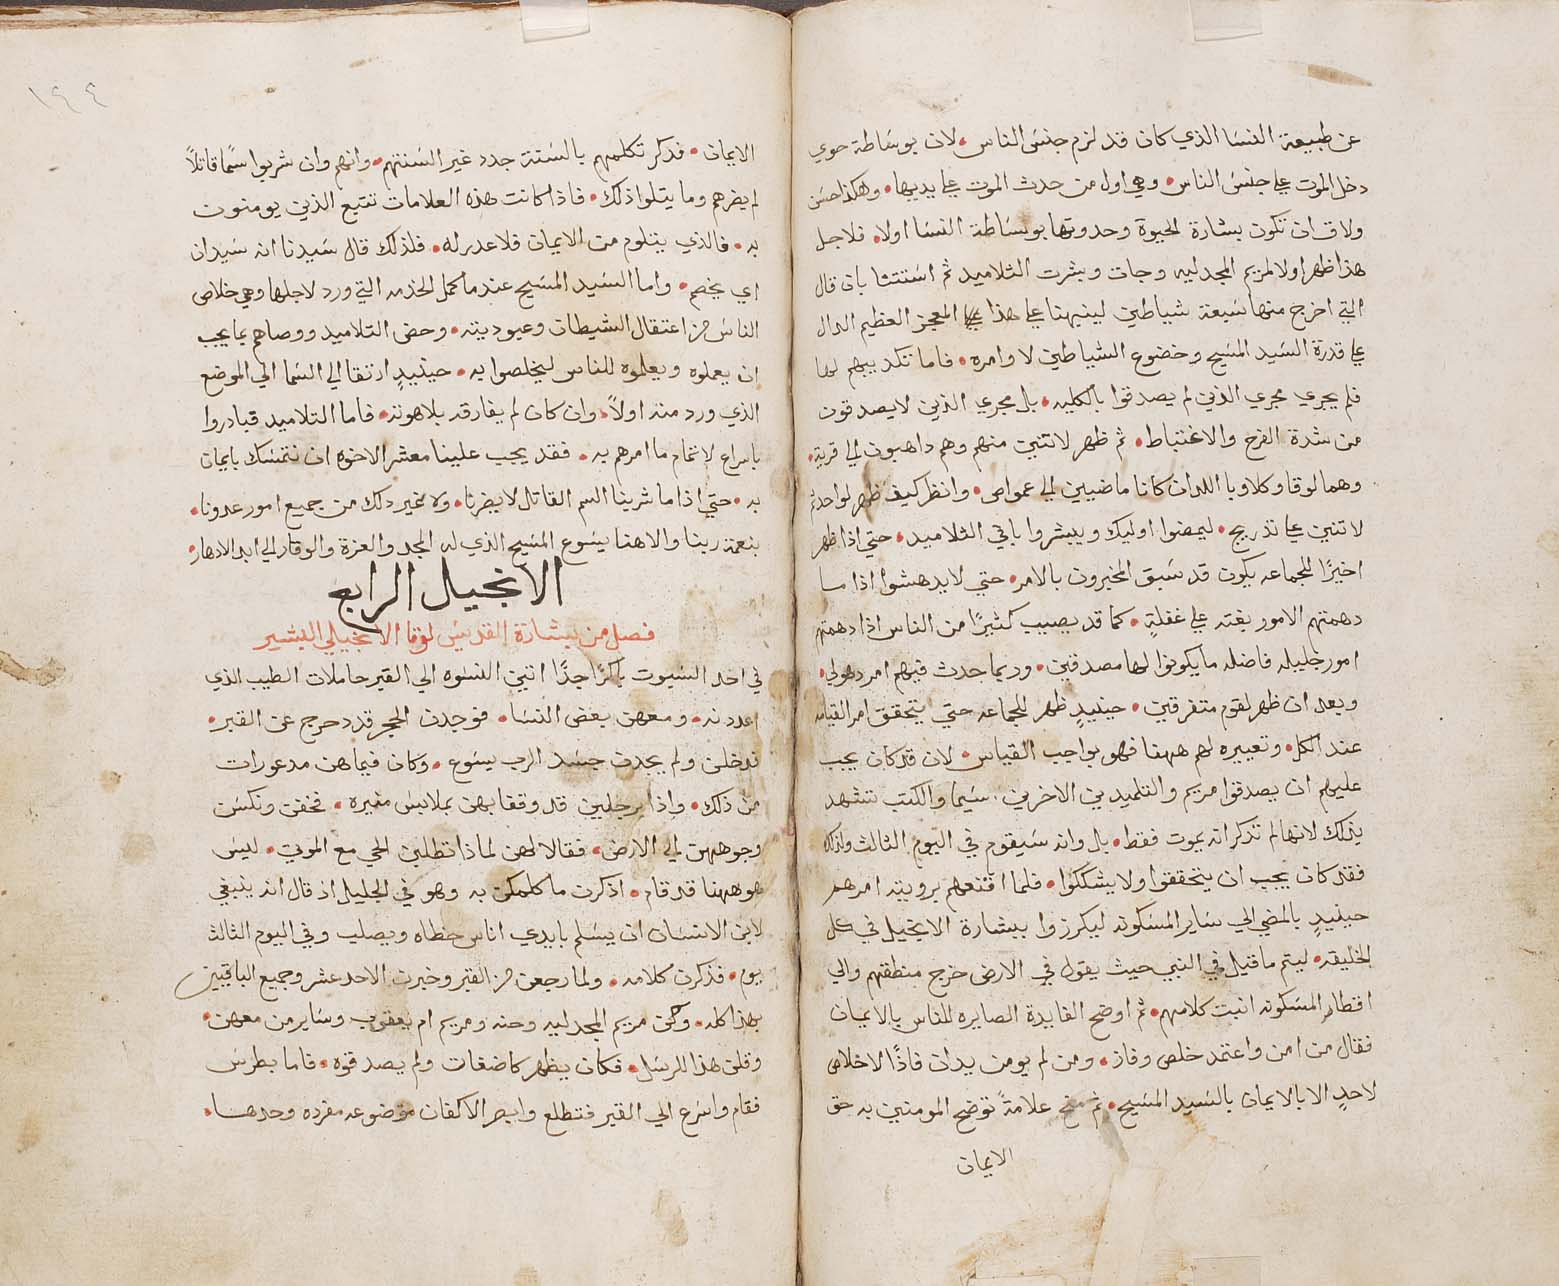 عن طبيعة النسا الذي كان قد لزم جنس الناس • لان بوساطة حوي
دخل الموت علي جنس الناس • وهي اول من حدث الموت علي يديها • وهكذا حسن
ولاق ان تكون بشارة الحيوة وحدوتها بوساطة النسا اولا • فلاجل
هذا ظهر اولا لمريم المجدليه وجات وبشرت التلاميد ثم استثنا بان قال
التي اخرج منها سبعة شياطين لينبهنا علي هذا علي المعجز العظيم الدال
علي قدرة السيد المسيح وخضوع الشياطين لاوامره • فاما تكديبهم لها
فلم يجري مجري الذين لم يصدقوا بالكليه • بل مجري الذين لا يصدقون
من شدة الفرح والاغتباط • ثم ظهر لاتنين منهم وهم داهبون الي قرية •
وهما لوقا وكلاوبا اللدان كانا ماضيين الي عمواص • وانظر كيف ظهر لواحد ثم
لاتنين علي تدريج • ليمضوا اوليك ويبشروا باقي التلاميد • حتي اذا ظهر
اخيرًا للجماعه يكون قد سبق المخبرون بالامر • حتي لا يدهشوا اذا ما
دهمتهم الامور بغته علي غفلةٍ • كما قد يصيب كثيرًا من الناس اذا دهمتهم
امور جليله فاضله ما يكونوا لها مصدقين • وربما حدث فيهم امر دهولي •
وبعد ان ظهر لقوم متفرقين • حينيدٍ ظهر للجماعه حتي يتحقق امر القيامه
عند الكل • وتعييره لهم ههنا فهو بواجب القياس • لان قد كان يجب
عليهم ان يصدقوا مريم والتلميدين الاخرين • سيما والكتب تشهد
بذلك لانها لم تذكر انه يموت فقط • بل وانه سيقوم في اليوم الثالث ولذلك
فقد كان يجب ان يتحققوا ولا يشككوا • فلما اقنعهم برويته امرهم
حينيدٍ بالمضي الي ساير المسكونه ليكرزوا ببشارة الانجيل في كل
الخليقه • ليتم ما قيل في النبي حيث يقول في الارض خرج منطقهم والي
اقطار المسكونه انبت كلامهم • ثم اوضح الفايدة الصايره للناس بالايمان
فقال من امن واعتمد خلص وفاز • ومن لم يومن يدان فاذًا لا خلاص
لاحدٍ الا بالايمان بالسيد المسيح • ثم منح علامةً توضح المومنين به حق
الايمان
١٤٤
الايمان • فدكر تكلمهم بالسنة جدد غير السنتهم • وانهم وان شربوا سمًا قاتلاً
لم يضرهم وما يتلوا ذلك • فاذا كانت هذه العلامات تتبع الذين يومنون
به • فالذي يتلوم من الايمان فلا عدر له • فلذلك قال سيدنا انه سيدان
اي يخصم • واما السيد المسيح عندما كمل الخدمه التي ورد لاجلها وهي خلاص
الناس من اعتقال الشيطان وعبوديته • وحض التلاميد ووصاهم بما يجب
ان يعملوه ويعلموه للناس ليخلصوا به • حينيدٍ ارتقا الي السما الي الموضع
الذي ورد منه اولاً • وان كان لم يفارقه بلاهوته • فاما التلاميد فبادروا
باسراع لاتمام ما امرهم به • فقد يجب علينا معشر الاخوه ان نتمسك بايمان
به • حتي اذا ما شربنا السم القاتل لا يضرنا • ولا غير دلك من جميع امور عدونا •
بنعمة ربنا والاهنا يسوع المسيح الذي له المجد والعزة والوقار الي ابد الادهار •
الانجيل الرابع
فصل من بشارة القديس لوقا الانجيلي البشير
في احد السبوت باكرًا جدًا اتين النسوه الي القبر حاملات الطيب الذي
اعددنه • ومعهن بعض النسا • فوجدن الحجر قد دحرج عن القبر •
فدخلن ولم يجدن جسد الرب يسوع • وكان فيما هن مدعورات
من ذلك • واذا برجلين قد وقفا بهن بملابس منيره • فخفن ونكسن
وجوههن الي الارض • فقالا لهن لماذا تطلبن الحي مع الموتي • ليس
هو ههنا قد قام • اذكرن ما كلمكن به وهو في الجليل اذ قال انه ينبغي
لابن الانسان ان يسلم بايدي اناس خطاه ويصلب وفي اليوم الثالث
يوم • فذكرن كلامه • ولما رجعن من القبر وخبرن الاحد عشر وجميع الباقيين
بهذا كله • وكن مريم المجدليه وحنه ومريم ام يعقوب وساير من معهن •
وقلن هذا للرسل • فكان يظهر كاضغاث ولم يصدقوه • فاما بطرس
فقام واسرع الي القبر فتطلع وابصر الاكفان موضوعه مفرده وحدها •